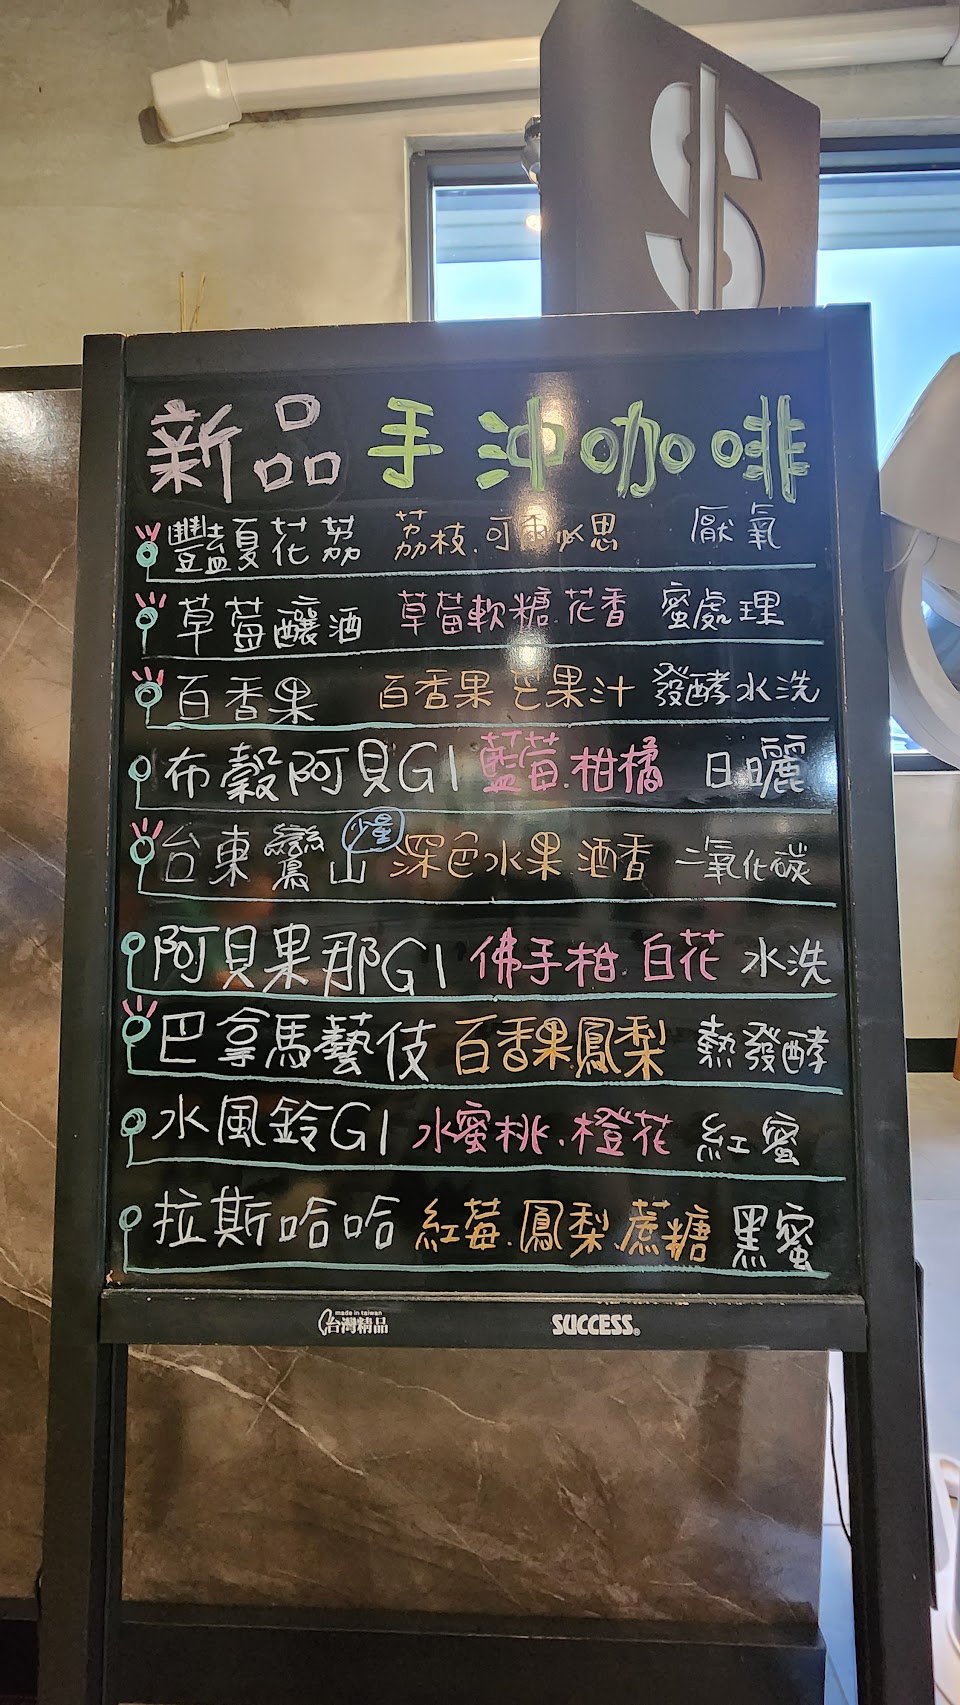 新品手沖咖啡
豔夏花荔 荔枝.可爾必思 厭氧
草莓釀酒 草莓軟糖.花香 蜜處理
百香果 百香果 芒果汁 發酵水洗
布穀阿貝G1 藍莓.柑橘 日曬
台東鸞山 少量 深色水果.酒香 二氧化碳
阿貝果那G1 佛手柑.白花 水洗
巴拿馬藝伎 百香果.鳳梨 熱發酵
水風鈴G1 水蜜桃.橙花 紅蜜
拉斯哈哈 紅莓.鳳梨.蔗糖 黑蜜
made in taiwan
台灣精品 SUCCESS®